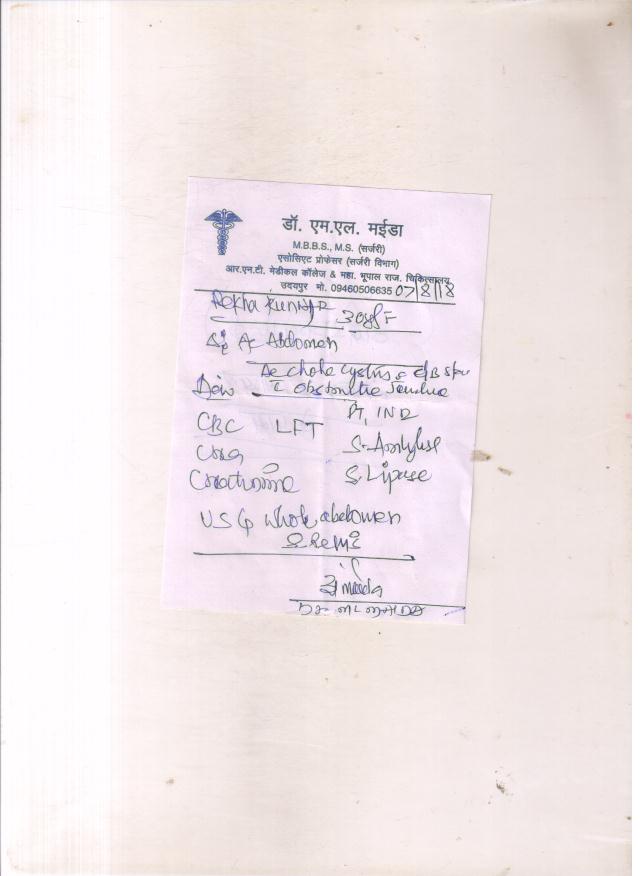 डॉ. एम.एल. मईडा
M.B.B.S., M.S. (सर्जरी)
एसोसिएट प्रोफेसर (सर्जरी विभाग)
आर.एन.टी. मेडीकल कॉलेज & महा. भूपाल राज. चिकित्सालय
उदयपुर मो. 09460506635 07/8/18
Rekha Kumar
Ac Abdomen
Ac chole Cystitis
Obstructive Jaundice
Adv
PT, INR
CBC LFT
S. Amylase
Urea
Creatinine
S. Lipase
USG whole abdomen
Dr ML